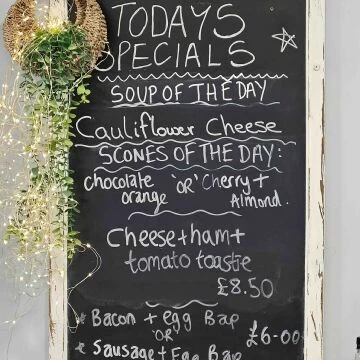 TODAYS
SPECIALS
SOUP OF THE DAY
Cauliflower Cheese
SCONES OF THE DAY:
chocolate orange 'OR' Cherry + Almond.
Cheese+ham+
tomato toastie
£8.50
Bacon + egg Bap
'OR'
£6-00
Sausage + Egg Bap